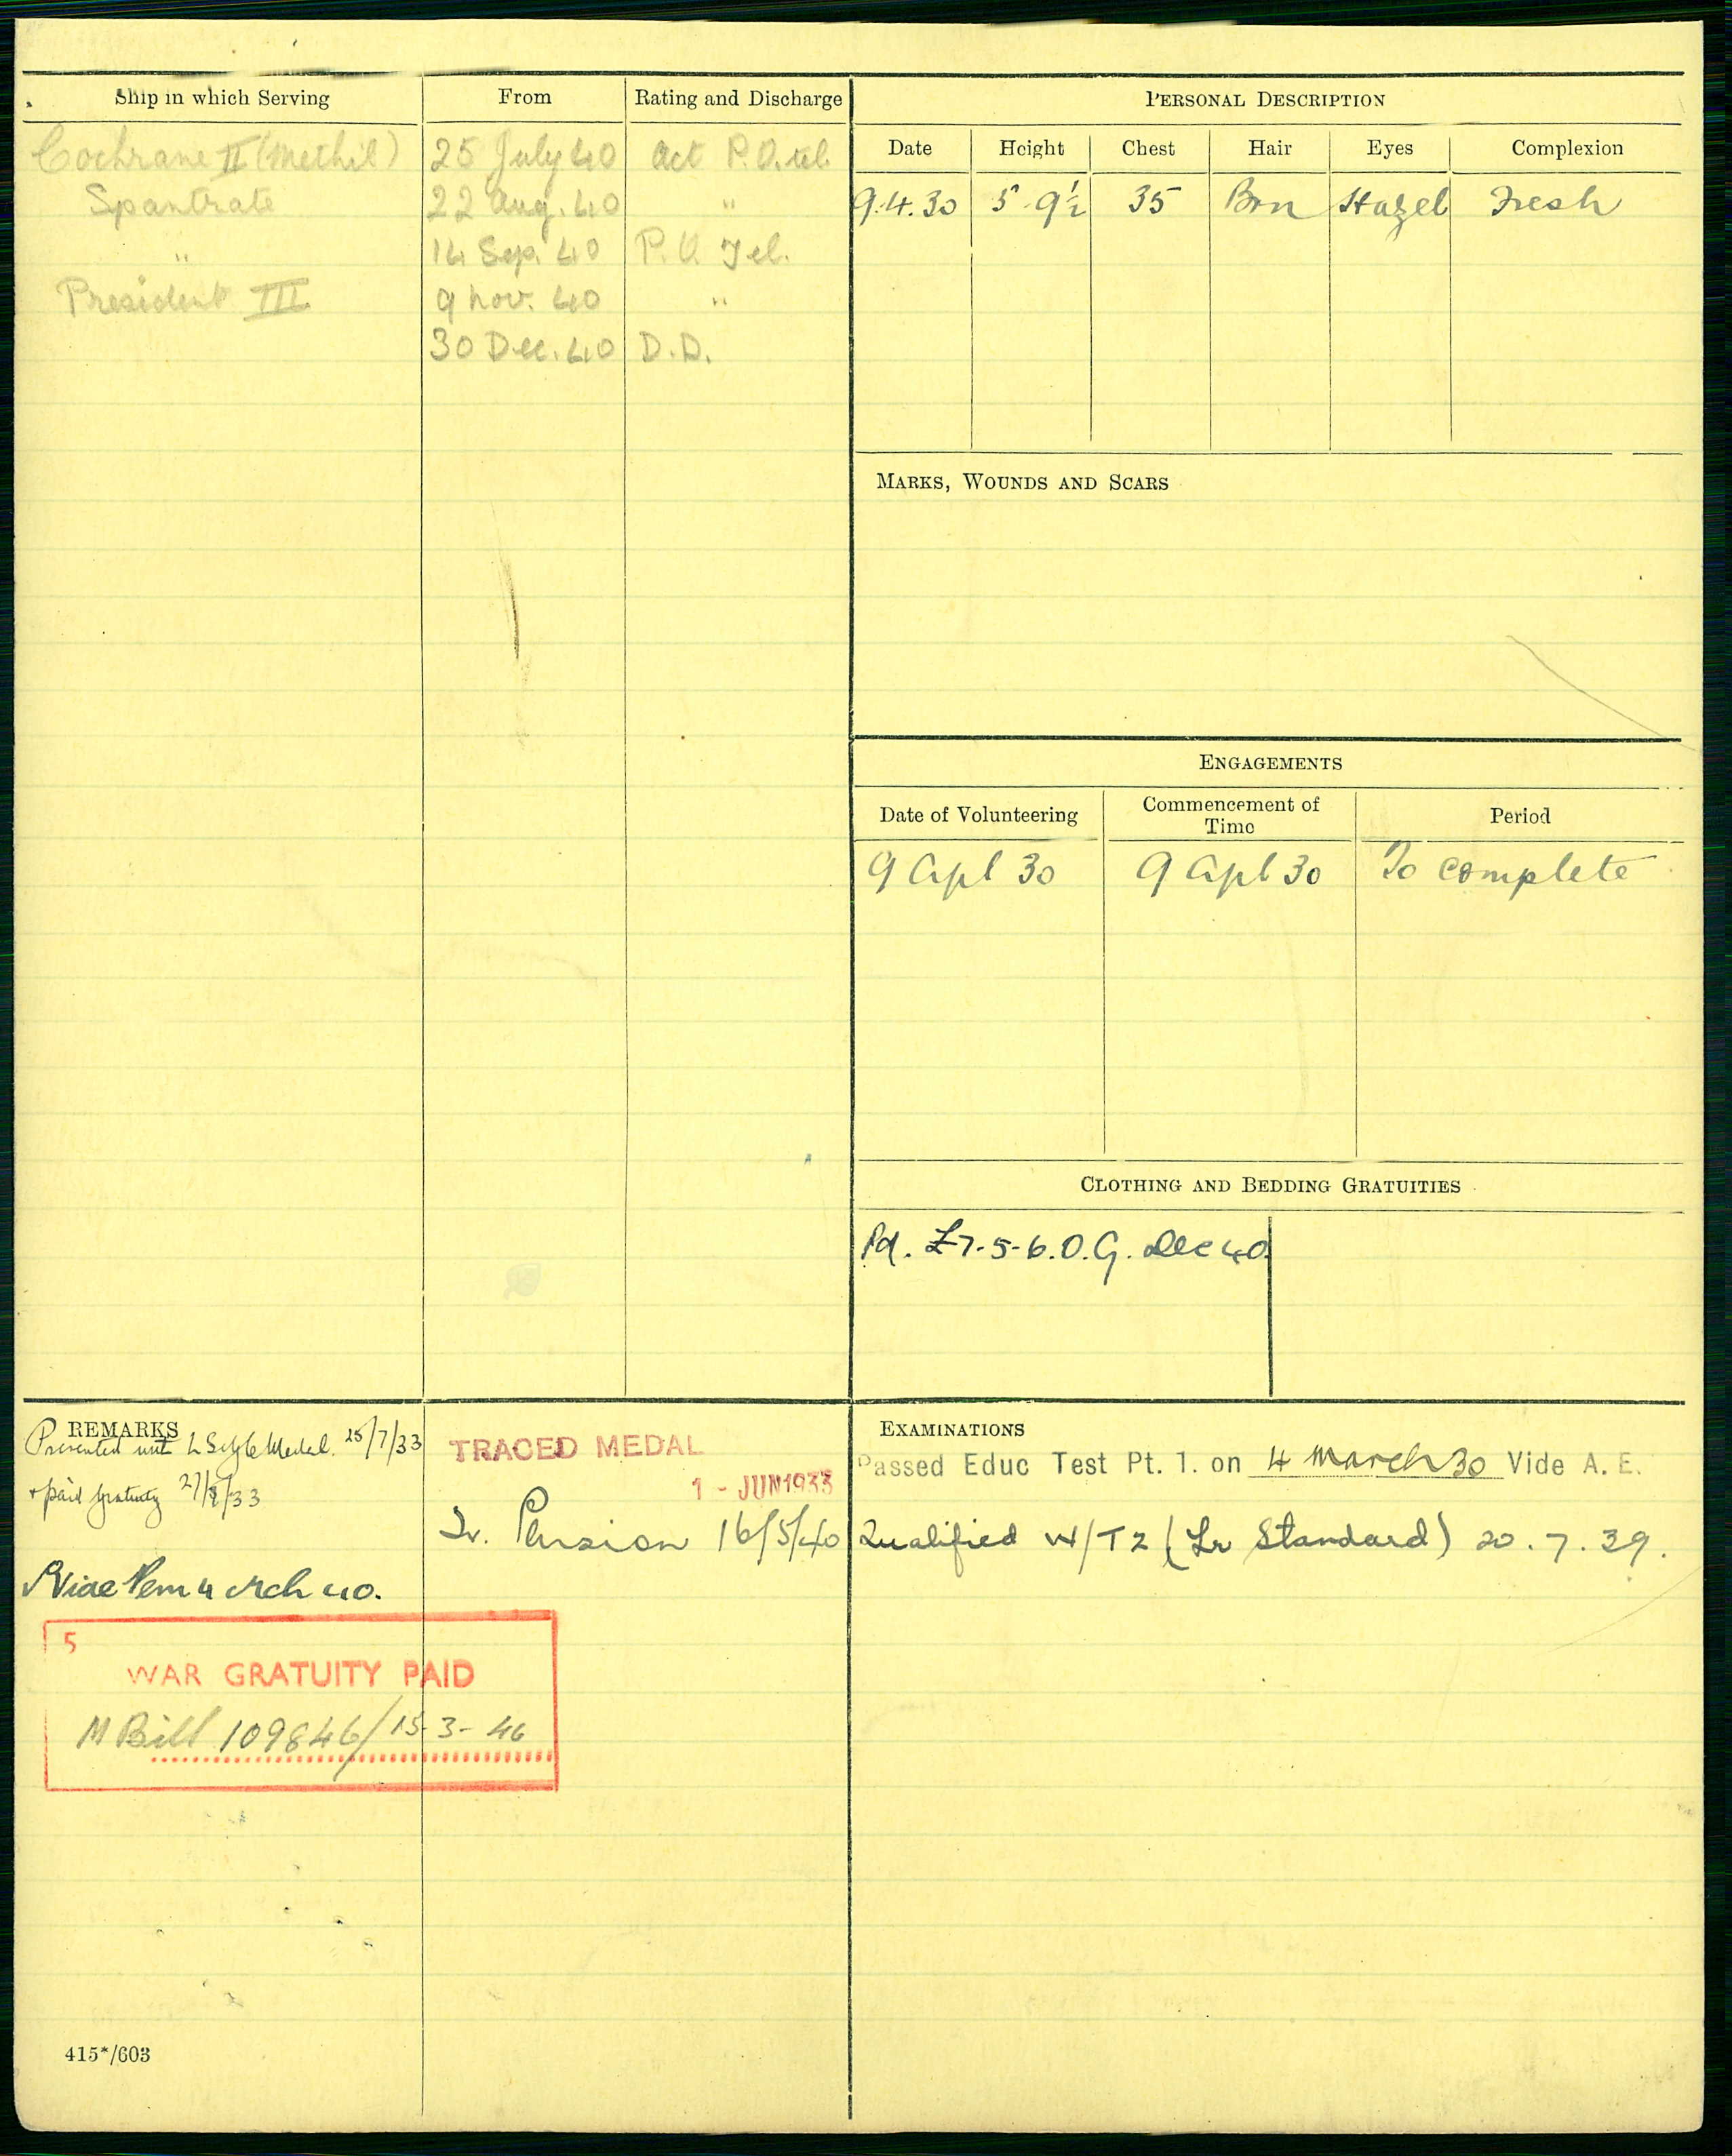 Ship in which Serving From Rating and Discharge
Cochrane II (Methil) 25 July 40 Act P.O. tel.
Spartiate 22 Aug. 40 "
" 14 Sep. 40 P.O. Tel.
President III 9 Nov. 40 "
30 Dec. 40 D.D.
PERSONAL DESCRIPTION
Date Height Chest Hair Eyes Complexion
9.4.30 5' 9½ 35 Brn Hazel Fresh
MARKS, WOUNDS AND SCARS
ENGAGEMENTS
Date of Volunteering Commencement of Time Period
9 Apl 30 9 Apl 30 To complete
CLOTHING AND BEDDING GRATUITIES
Pd. £7-5-6. O.G. Dec 40
REMARKS
Presented with L S & G C Medal. 25/7/33
+ paid gratuity 33
Pem 4 Mch 40.
5
WAR GRATUITY PAID
M Bill 109846/15-3-46
TRACED MEDAL
1 - JUN 1933
Pension 16/5/40
EXAMINATIONS
Passed Educ Test Pt. 1. on 4 March 30 Vide A. E.
Qualified W/T 2 (Lr Standard) 20.7.39.
415*/603